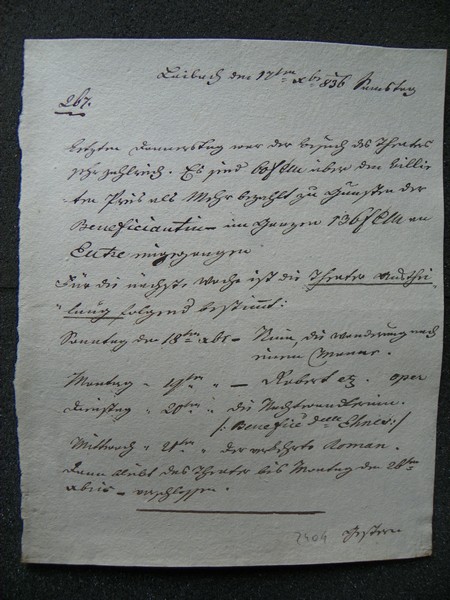 Laibach den 17ten Xbr 836 Samstag
267.
Letzten Donnerstag war der Besuch des Theaters
sehr zahlreich. Es sind 60 f CM über den Billie
ten Preis als Mehr bezahlt zu Gunsten der
Beneficiantin – im Ganzen 136 f CM an
Entre eingegangen
Für die nächste Woche ist die Theater Austhei-
"lung folgend bestimmt:
Sonntag den 18ten Xbr – die Wanderung nach
einem Manne.
Montag " 19ten " – Robert etz. oper
Dienstag " 20ten " die Nachtwandlerinn.
/: Benefice der Ehnes :/
Mittwoch " 21ten " der verkehrte Roman.
Dann bleibt das Theater bis Montag den 26ten
Xbris – verschlossen.
2404 Gestern